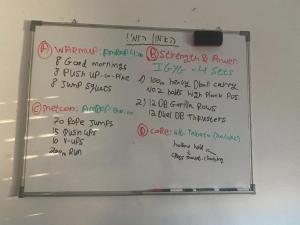 A WARMUP: AMRAP
8 Good mornings
8 PUSH UP-to-Pike
8 Jump Squats
B Strength & Power
IGYG - 4 sets
1) 100m heavy Dball carry
plank Pos.
2) 12 DB Gorilla Rows
12 Dual DB Thrusters
C Metcon: AMRAP
20 Rope Jumps
15 Push ups
10 V-ups
200m Run
D Core: Tabata
hollow hold